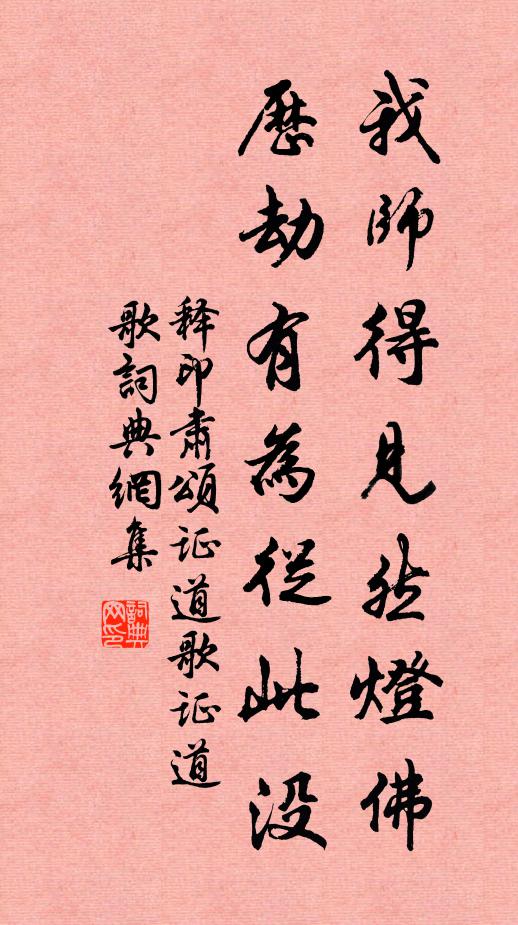 我師得見然燈佛
歷劫有為從此没
释印肅頌证道歌证道
歌詞典網集
詞典網印